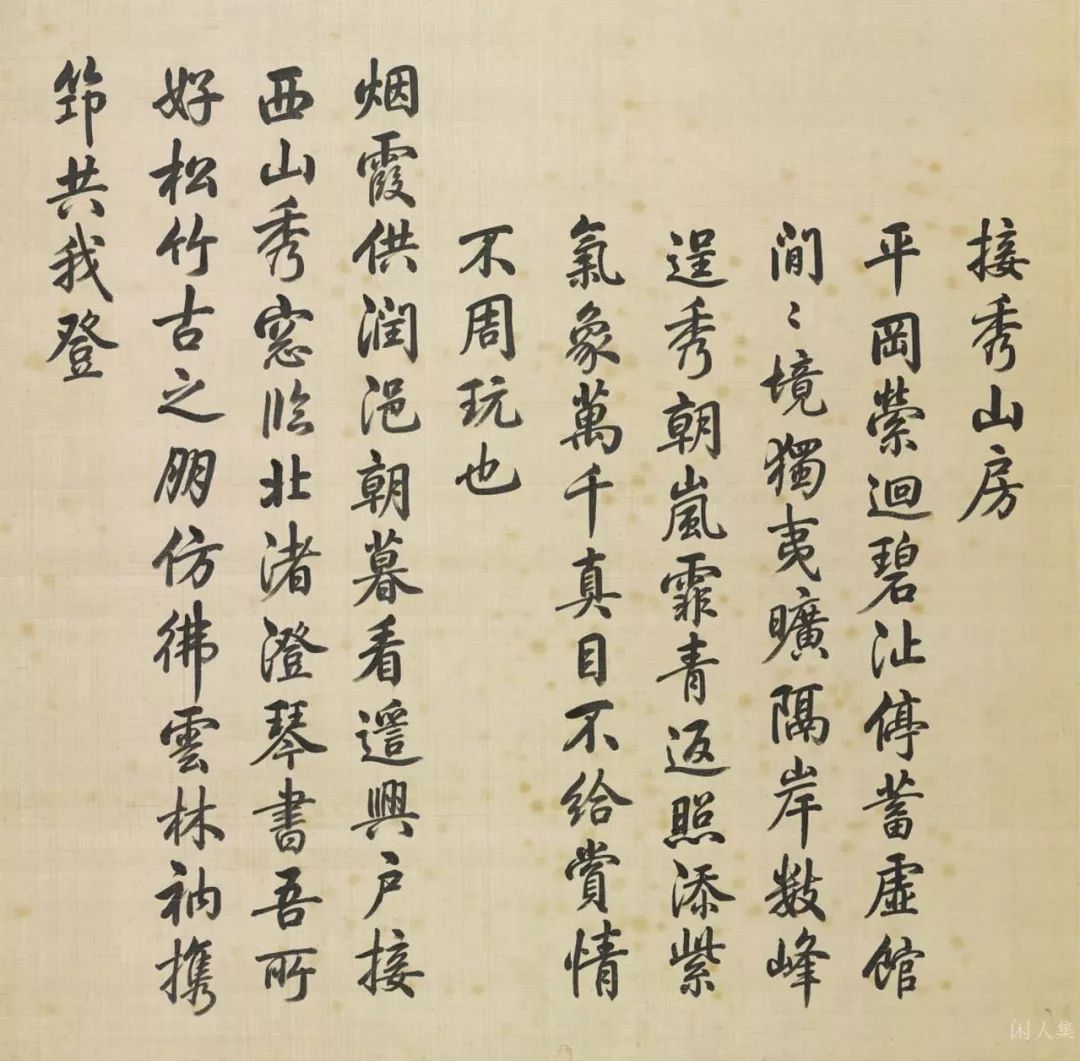 接秀山房
平岡縈迴碧沚停蓄虛館
閒〻境獨夷曠隔岸數峰
逞秀朝嵐霏青返照添紫
氣象萬千真目不給賞情
不周玩也
烟霞供潤浥朝暮看遥興户接
西山秀窓臨北渚澄琴書吾所
好松竹古之朋仿彿雲林衲携
笻共我登
闲人集